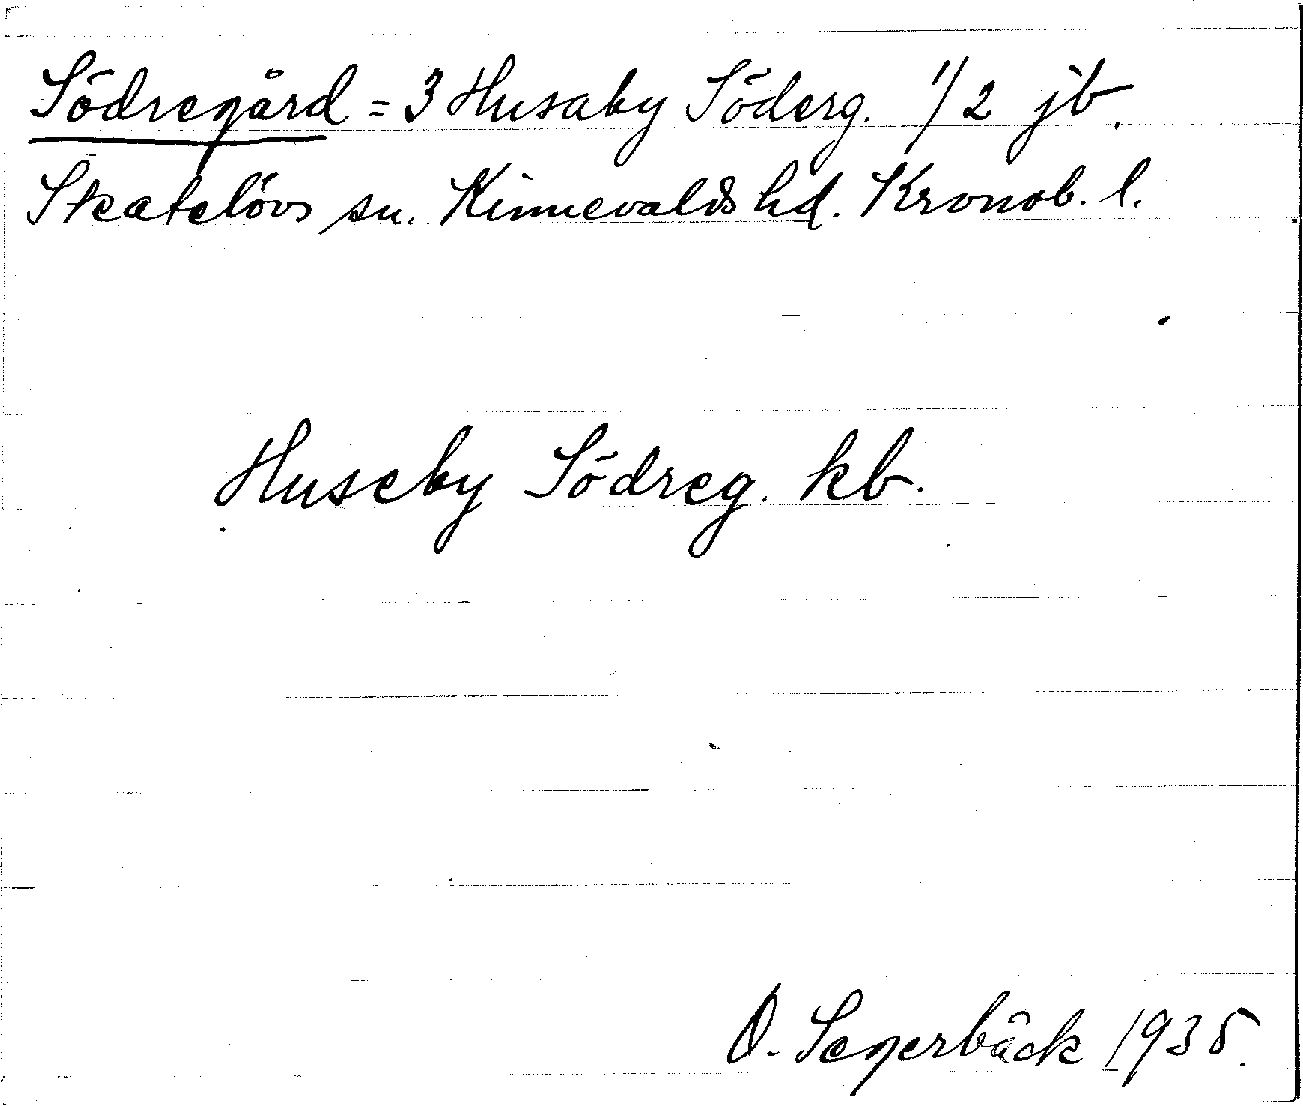 Södregård = 3 Husaby Söderg. 1/2 jb.
Skatelövs sn. Kinnevalds hd. Kronob. l.
Huseby Södreg. kb.
O. Segerbäck 1935.